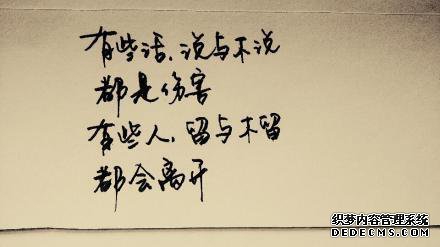 有些话、说与不说
都是伤害
有些人、留与不留
都会离开
织梦内容管理系统
DEDECMS.COM